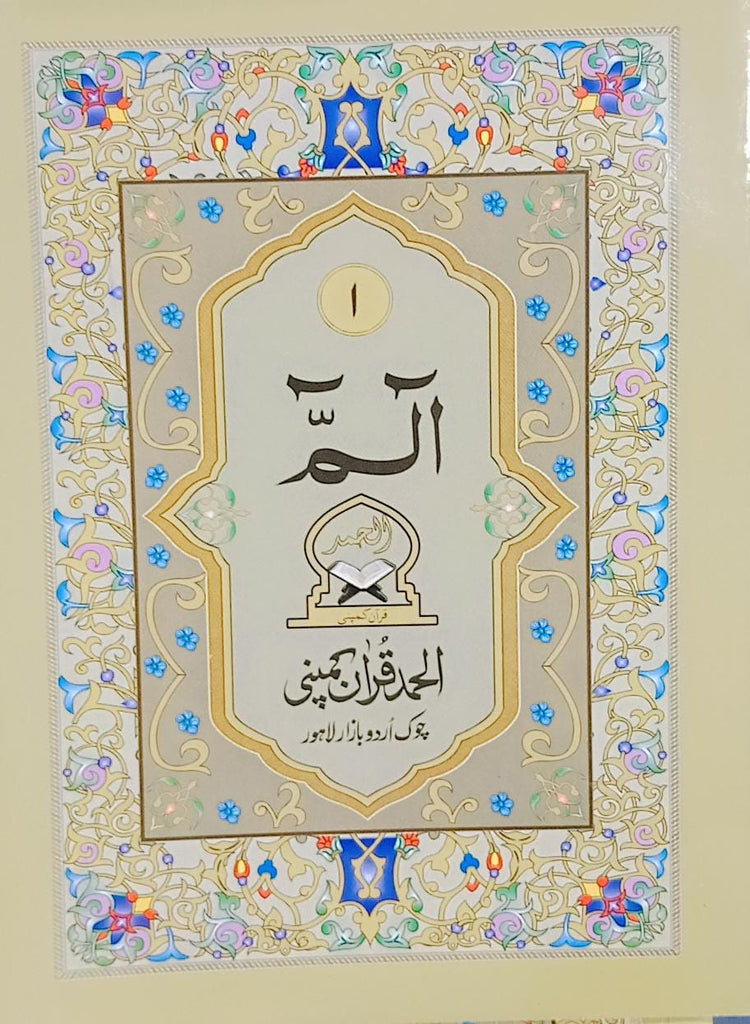 ۱
الٓـمّٓ
الحمد
قرآن کمپنی
الحمد قُرآن کمپنی
چوک اُردو بازار لاہور